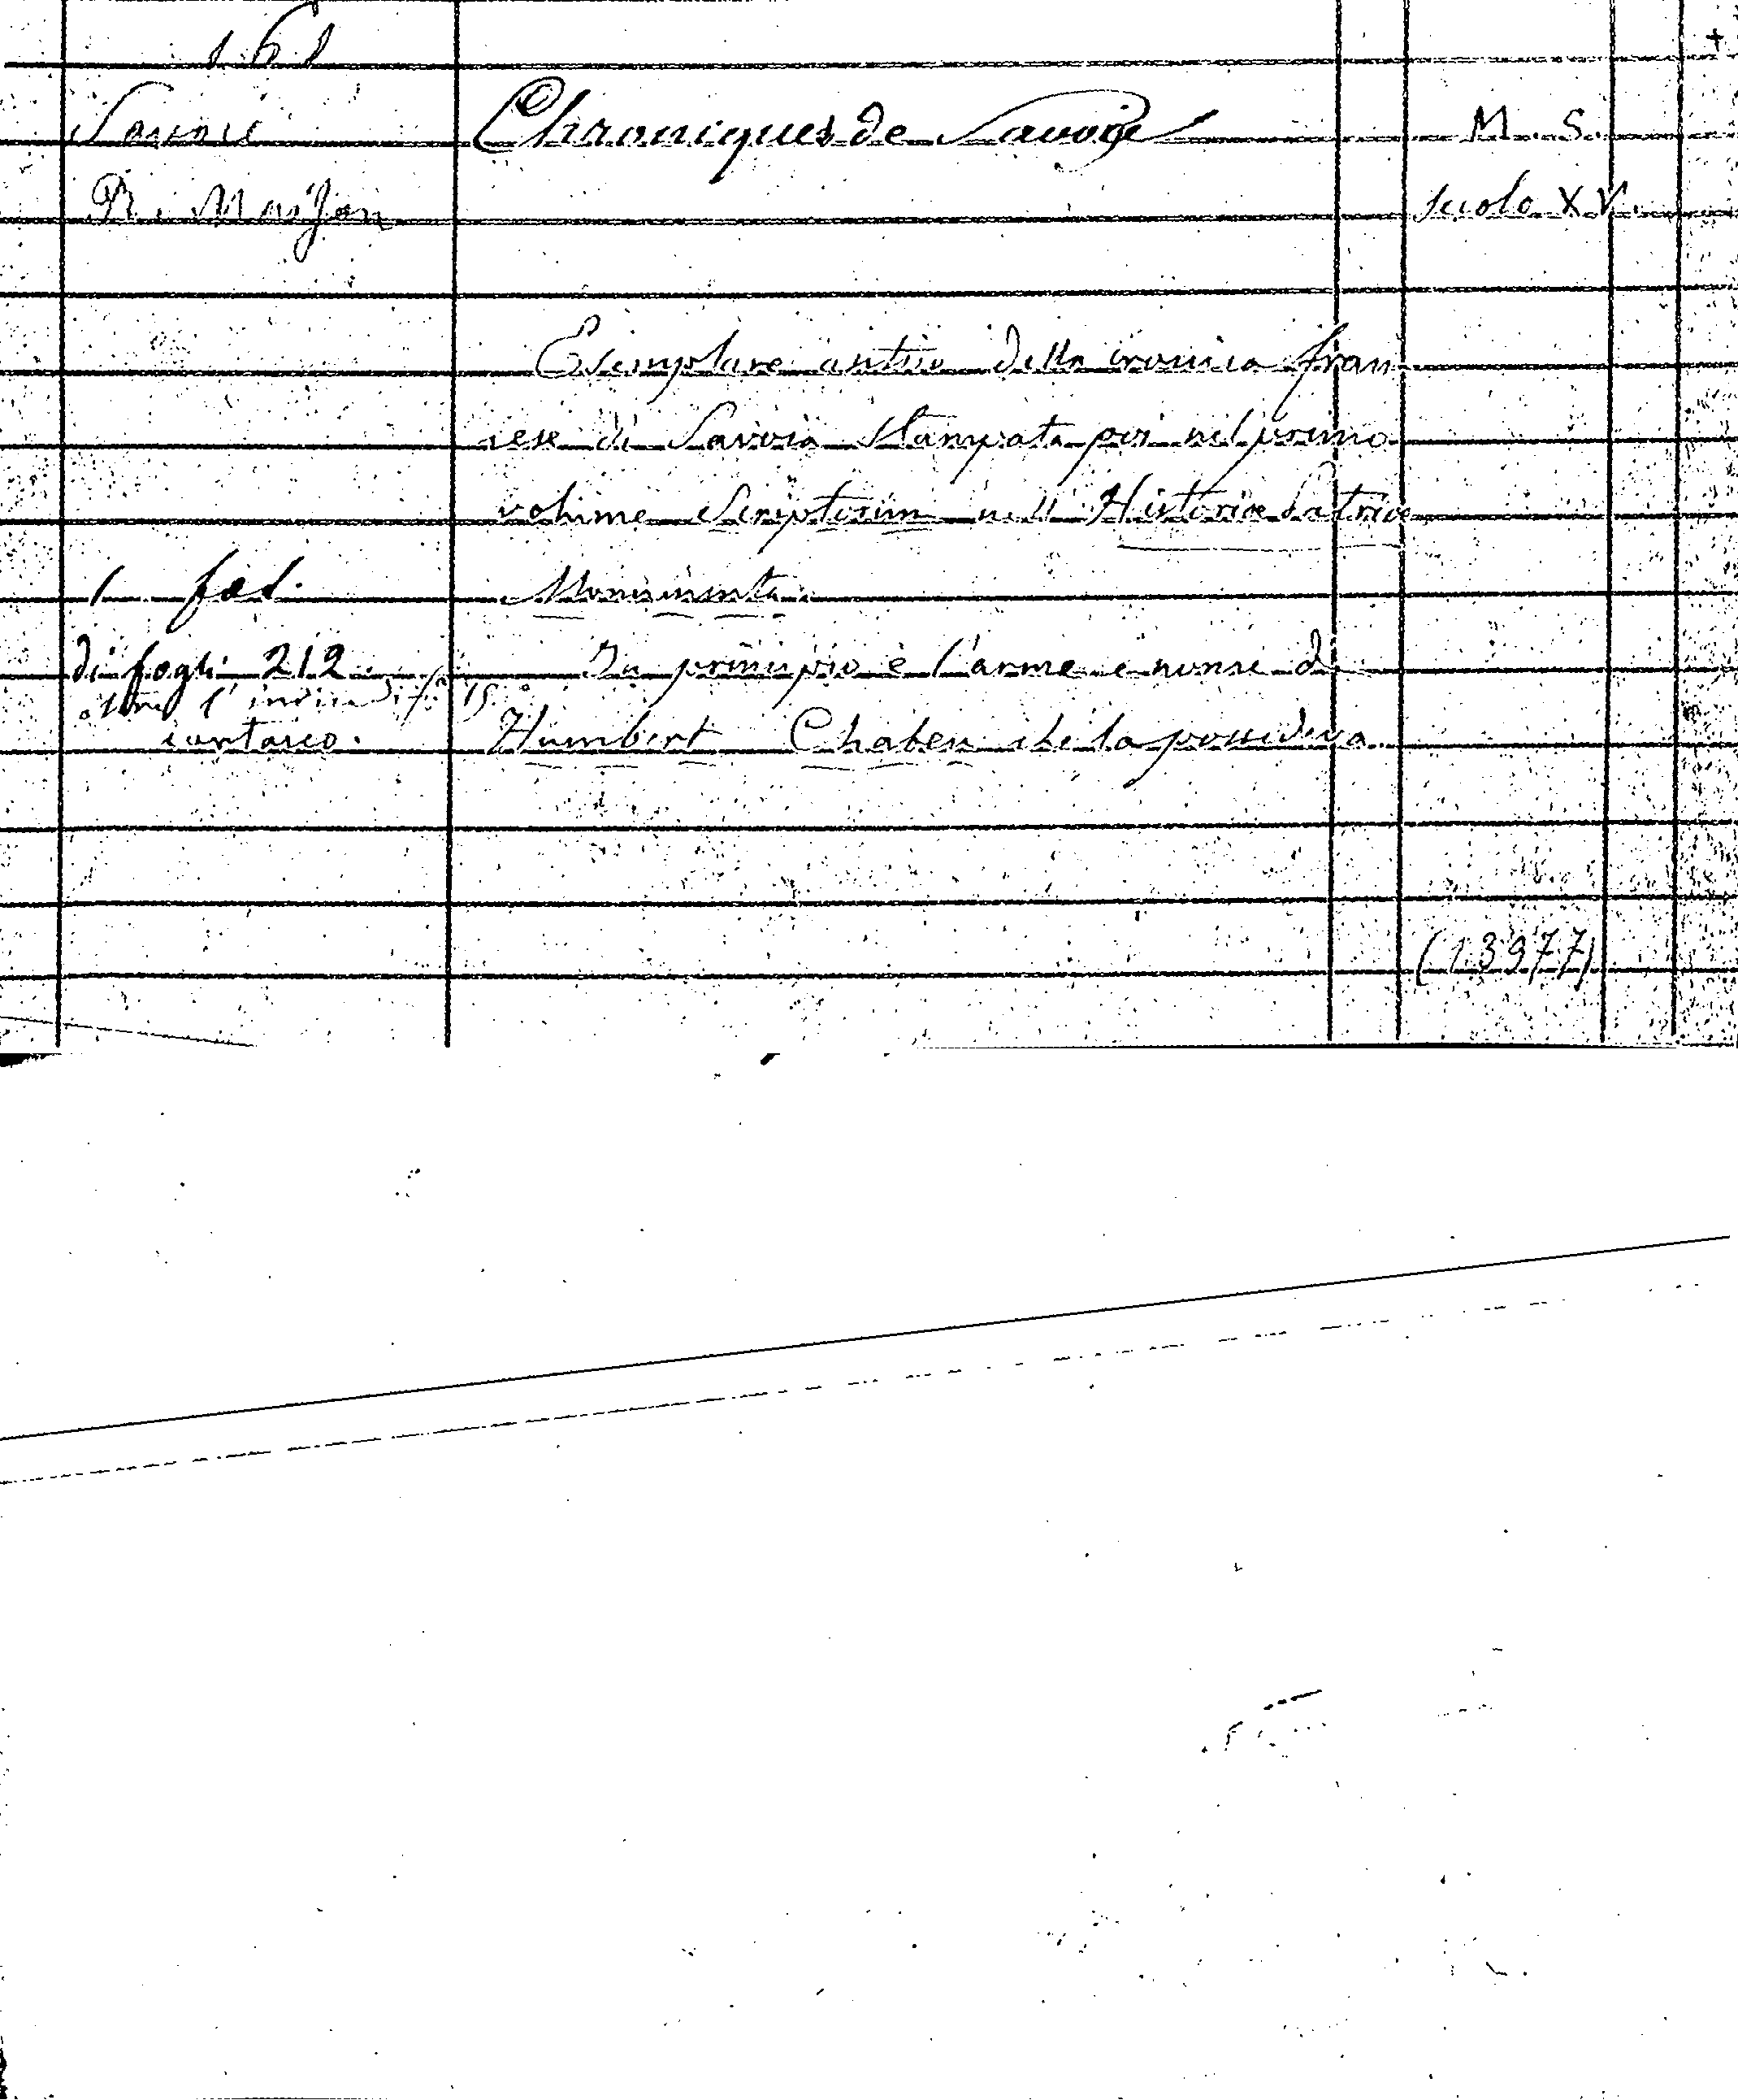 161
Savoie
Chroniques de Savoye
M. S.
secolo XV.
Esemplare antico della cronica fran
cese di Savoia stampata poi nel primo
volume Scriptorum nell' Historiae Patriae
1 fol.
Monumenta.
di fogli 212.
In principio è l'arme e nome di
oltre l' indice di f. 15.
cartaceo.
Humbert che la possedeva
(13977)